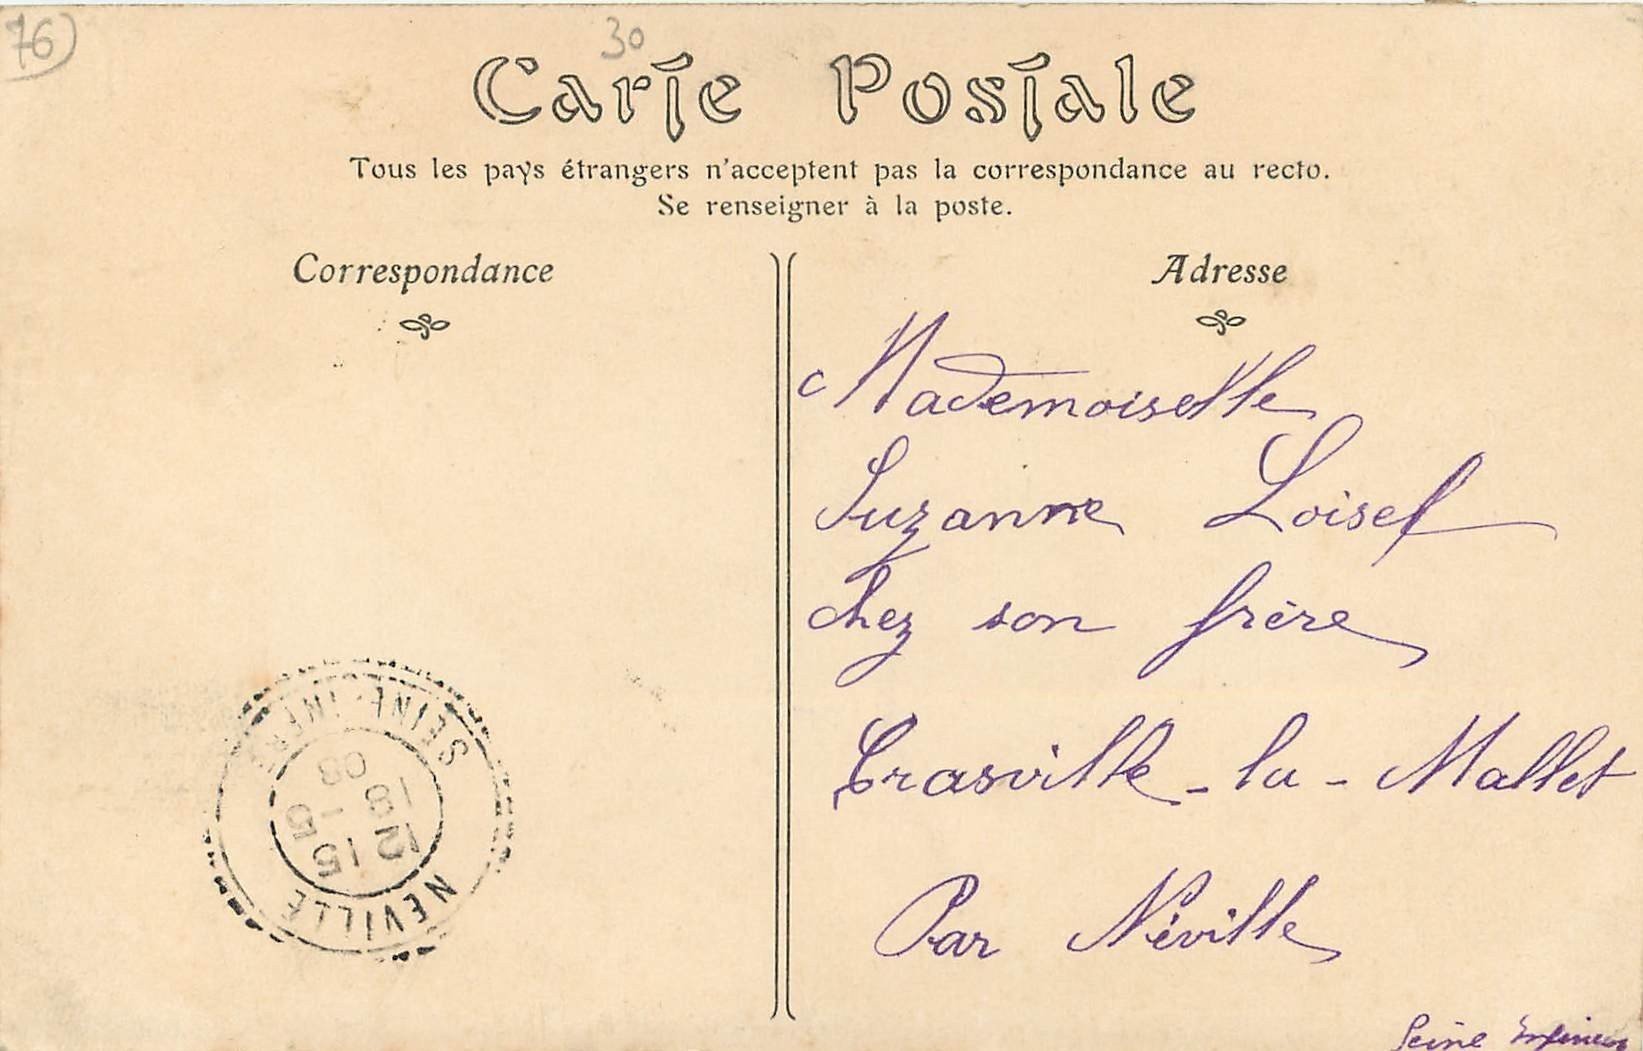 76
30
Carte Postale
Tous les pays étrangers n'acceptent pas la correspondance au recto.
Se renseigner à la poste.
Correspondance
Adresse
Mademoiselle
Suzanne Loisel
chez son frère
Crasville-la-Mallet
Par Néville
Seine Inférieure
SEINE-INFRE
12 15
18 - 5
08
NEVILLE